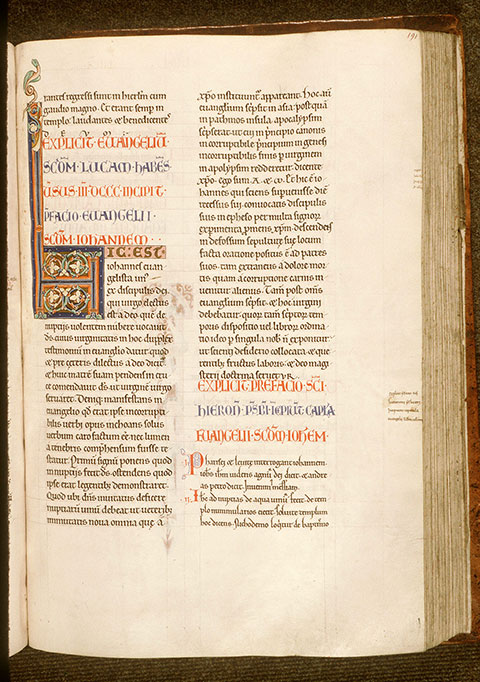 191
rantes regressi sunt in hierlm cum
gaudio magno. Et erant semp in
templo. laudantes & benedicentes
EXPLICIT EVANGELIU
SCDM LUCAM HABES
INCIPIT
PFACIO EVANGELII
SCDM IOHANNEM
HIC EST
iohannes euan
gelista un
ex discipulis dei
qui uirgo electus
est a deo que de
nuptijs uolentem nubere uocauit
ds. cuius uirginitatis in hoc duplex
testimoniu in euanglio datur quod
& pre ceteris dilectus a deo dicit
& huic matre suam pendens in cru
ce comendauit ds. ut uirgine uirgo
seruaret. Deniq manifestans in
euanglio qd erat ipse incorrupti
bilis uerbi opus inchoans solus
uerbum caro factum ee nec lumen
a tenebris comphensum fuisse te
statur. Primu signu ponens quod
in nuptijs fecit dns ostendens quod
ipse erat legentib; demonstraret.
Quod ubi dns inuitatus deficere
nuptiaru uinu debeat ut ueterib;
immutatis noua omnia que a
xpo instituunt appareant. Hoc aut
euanglium scripsit in asia postqua
in pathmos insula apocalypsim
scripserat ut cui in principio canonis
incorruptibile principium in genesi
incorruptibilis finis p uirginem
in apocalypsi redderet dicente
xpo. ego sum A & ω. Et hic e io
hannes qui sciens superuenisse die
recessus sui. conuocatis discipulis
suis in epheso per multa signor
experimenta pmens xpm. descendens
in defossum sepulture sue locum
facta oratione positus e ad patres
suos. tam extraneus a dolore mor
tis quam a corruptione carnis in
uenitur alienus. Tam post oms
euanglium scripsit. & hoc uirgini
debebatur. quor tam scriptor tem
poris dispositio uel libror ordina
tio ideo p singula nob n exponitur
ut sciendi desiderio collocata & que
rentib; fructus laboris. & deo magi
sterii doctrina seruetur.
EXPLICIT PREFACIO SCI
HIERONI PSBRI INCIPIUT CAPLA
EUANGELII SCDM IOHEM
Pharisei & leuite interrogant iohannem
iohs ihm uidens agnu dei dicit & andre
as petro dicit. Inuenim messiam.
II. Ihc ad nuptias de aqua uinu fecit. de tem
plo nummularios eiecit. soluite templum
hoc dicens. Nichodemo loqitur de baptismo